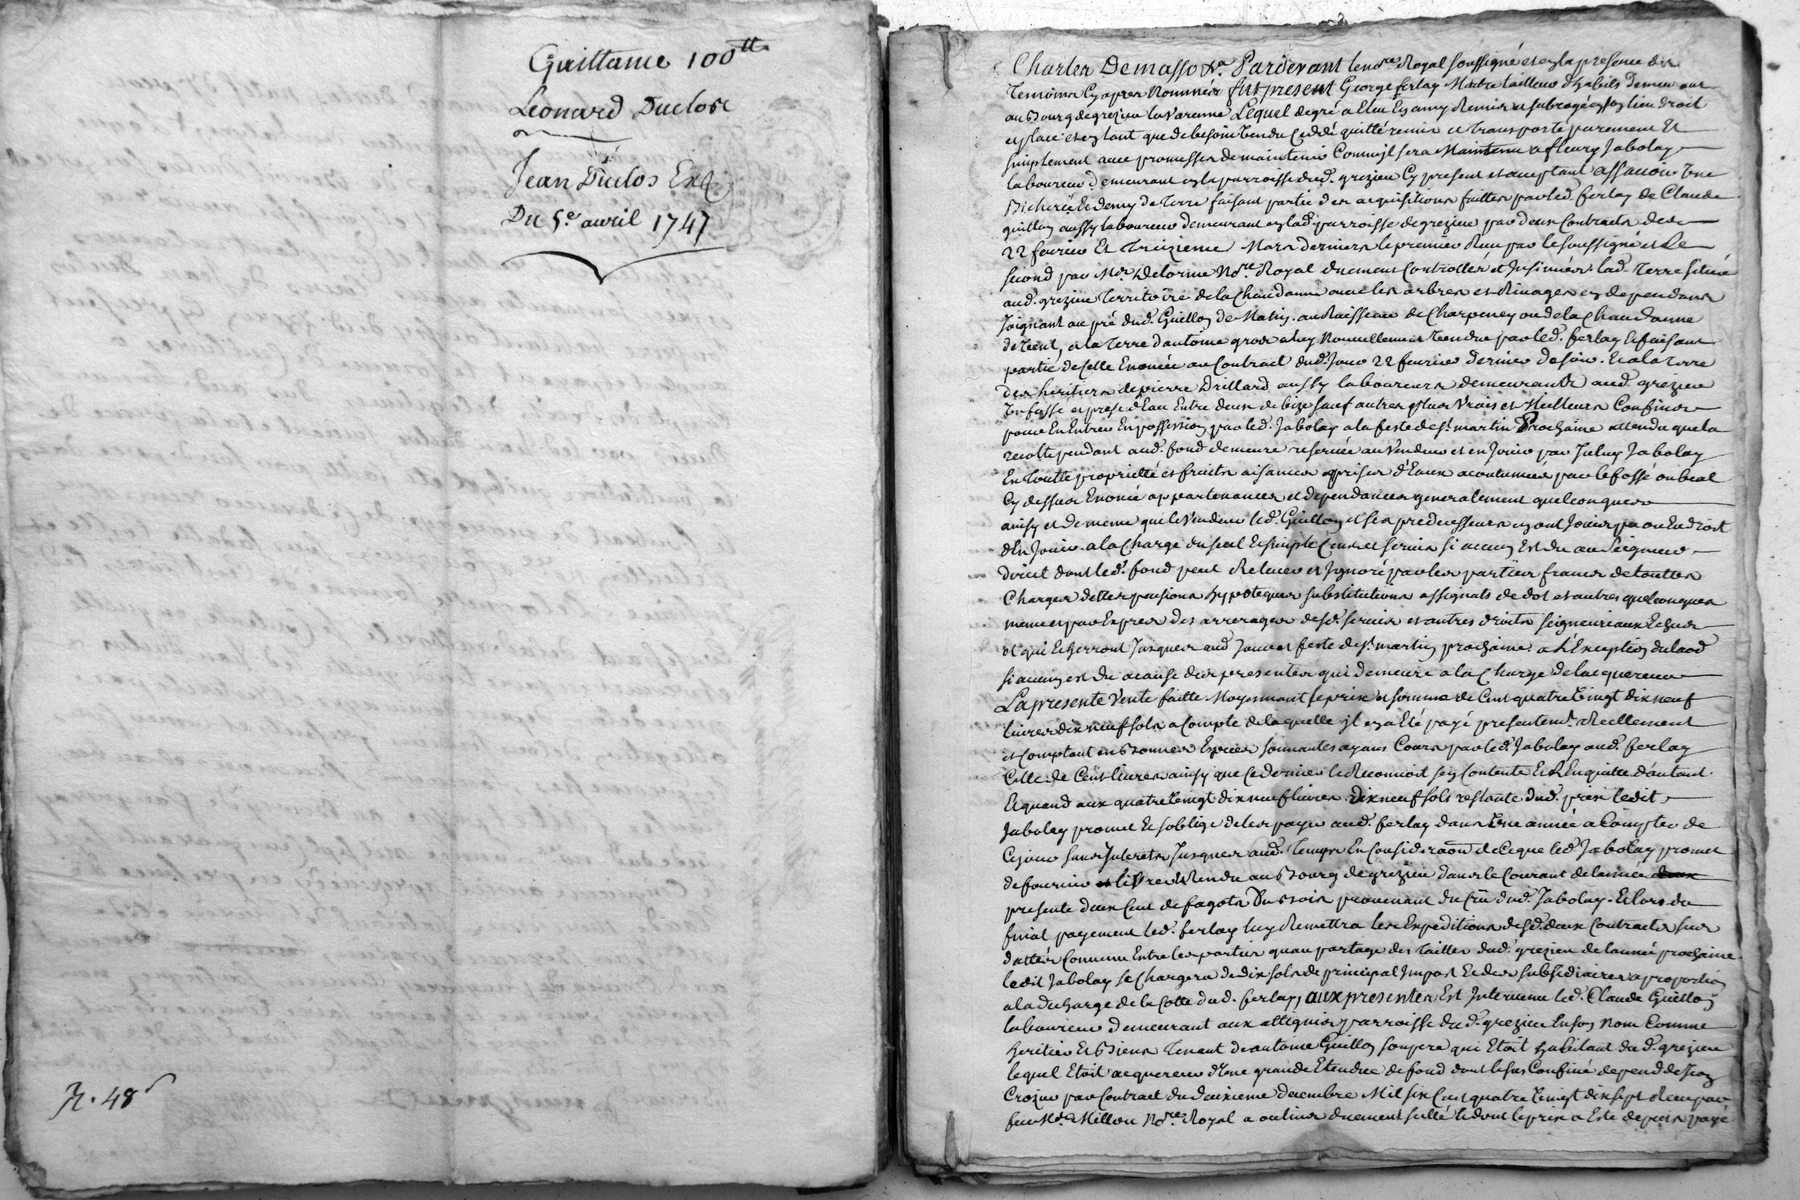 Quittance 100tt
Léonard Duclos
Jean Duclos
Du 5e avril 1747
R. 48s
Pardevant le nore Royal soussigné et en la presence des
Temoins Cy apres Nommés fut present George ferlay Maitre tailleur d'habits demeurant
au Bourg de grezieu la Varenne Lequel de gré a Eleu En amy Remis et subrogé en son lieu droit
et place et en tant que de besoin Vendu Cedé quitté remis et Transporté purement Et
simplement avec promesses de maintenir Comme jl sera Maintenu a fleury Jabolay
laboureur demeurant en la parroisse dud. grezieu Cy present et acceptant assavoir Une
Bicherée Et demy de Terre faisant partie des acquisitions faittes par led. ferlay de Claude
guillon aussy laboureur demeurant en lad. parroisse de grezieu par deux Contracts des
22 fevrier Et Treizieme Mars derniers le premier Reçu par le soussigné et Le
second par Me Delorme Nore Royal duement Controllés et Insinués. lad. Terre située
aud. grezieu Territoire de la Chaudanne avec les arbres et Rivages en dependans
Joignant au pré dud. Guillon de Matin. au Ruisseau de Charpeney ou de la Chaudanne
de Vent, a la Terre d'antoine gros a luy Nouvellement Vendue par led. ferlay Et faisant
partie de Celle Enoncée au Contract dud. Jour 22 fevrier dernier de soir. Et a la Terre
des heritiers de pierre Drillard aussy laboureurs demeurants aud. grezieu
Un fossé et prise d'Eau Entre deux de bize sauf autres plus Vrais et Meilleurs Confins
pour En Entrer En possession par led. Jabolay a la feste de st. martin Prochaine attendu que la
recolte pendant aud. fond demeure reservée au Vendeur et en Jouir par Iceluy Jabolay
En Toutte proprietté et fruits aisances prises d'Eaux acoutumées par le fossé ou beal
Cy dessus Enoncé appartenances et dependances generalement quelconques
ainsy et de meme que le Vendeur led. Guillon et ses predecesseurs en ont Joüi pû ou Eu droit
d'En Jouir. a la Charge du seul Et simple Cens et servis si aucun Est du au Seigneur
direct dont led. fond peut Relever et Ignoré par les parties francs de touttes
Charges dettes pensions hypoteques substitutions assignats de dot et autres quelconques
meme par Expres des arrerages desd. servis et autres droits seigneuriaux Echus
et qui Echerront Jusques aud. Jour et feste de st. martin prochaine. a l'Exception du laod
si aucun est du a cause des presentes qui demeure a la Charge de lacquereur
La presente Vente faitte Moyennant le prix et somme de Cent quatre Vingt dix neuf
livres dix neuf sols a Compte de laquelle jl en a Eté payé presentemt. Reellement
et Comptant en bonnes Especes sonnantes ayans Cours par led. Jabolay aud. ferlay
Celle de Cent livres ainsy que Ce dernier le Reconnoit s'en Contente Et L'En quitte d'autant.
Et quand aux quatre Vingt dix neuf livres dix neuf sols restants dud. prix ledit
Jabolay promet Et s'oblige de les payer aud. ferlay dans Une année a Compter de
Ce jour sans Interets Jusques aud. Temps En Consideraon de Ce que led. Jabolay promet
de fournir et livrer Rendu au Bourg de grezieu dans le Courant de lannée
presente deux Cent de fagots Du bois provenant du Crû dud. Jabolay. Et lors du
final payement led. ferlay luy Remettra les Expeditions desd. deux Contracts sus
dattés Convenu Entre les parties quau partage des Tailles dud. grezieu de lannée prochaine
ledit Jabolay se Chargera de dix sols de principal Impost Et des subsidiaires a proportion
a la decharge de la Cotte dud. ferlay, aux presentes Est Intervenu led. Claude Guillon
laboureur demeurant aux attignies parroisse dud. grezieu En son Nom Comme
heritier Et Biens Tenant de antoine Guillon son pere qui Etoit habitant dud. grezieu
lequel Etoit acquereur d'Une grande Etendue de fond dont le sus Confiné depend de Jean
Crozier par Contract du deuxieme decembre Mil six Cent quatre Vingt dix sept Reçu par
feu Me Millon Nore Royal duement scellé Et dont le prix a Eté depuis payé